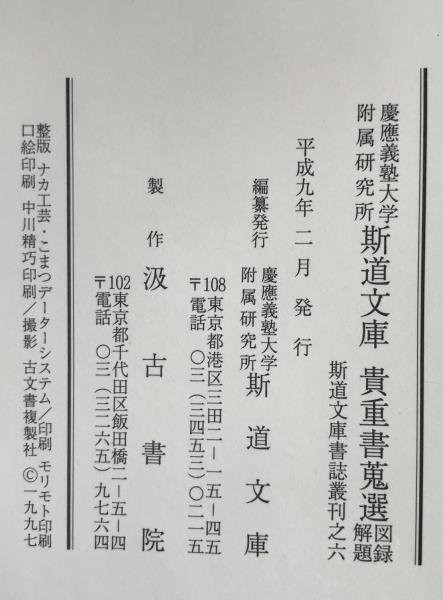 慶應義塾大学
附属研究所 斯道文庫 貴重書蒐選 図録
解題
斯道文庫書誌叢刊之六
平成九年二月発行
編纂発行 慶應義塾大学
附属研究所 斯道文庫
〒108 東京都港区三田二―一五―四五
電話 〇三(三四五三)〇二一五
製作 汲古書院
〒102 東京都千代田区飯田橋二―五―四
電話 〇三(三二六五)九七六四
整版 ナカ工芸・こまつデーターシステム/印刷 モリモト印刷
口絵印刷 中川精巧印刷/撮影 古文書複製社 ©一九九七